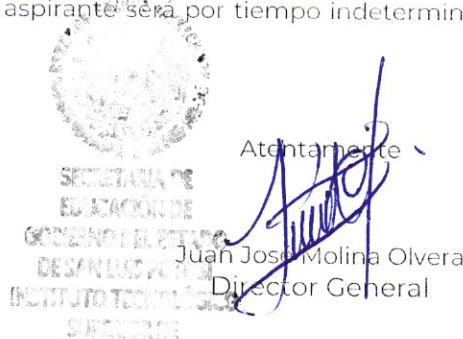 aspirante será por tiempo indetermin
Atentamente
SECRETARIA DE
EDUCACIÓN DE
GOBIERNO DEL ESTADO
DE SAN LUIS POTOSI
INSTITUTO TECNOLÓGICO
SUPERIOR DE
Juan José Molina Olvera
Director General